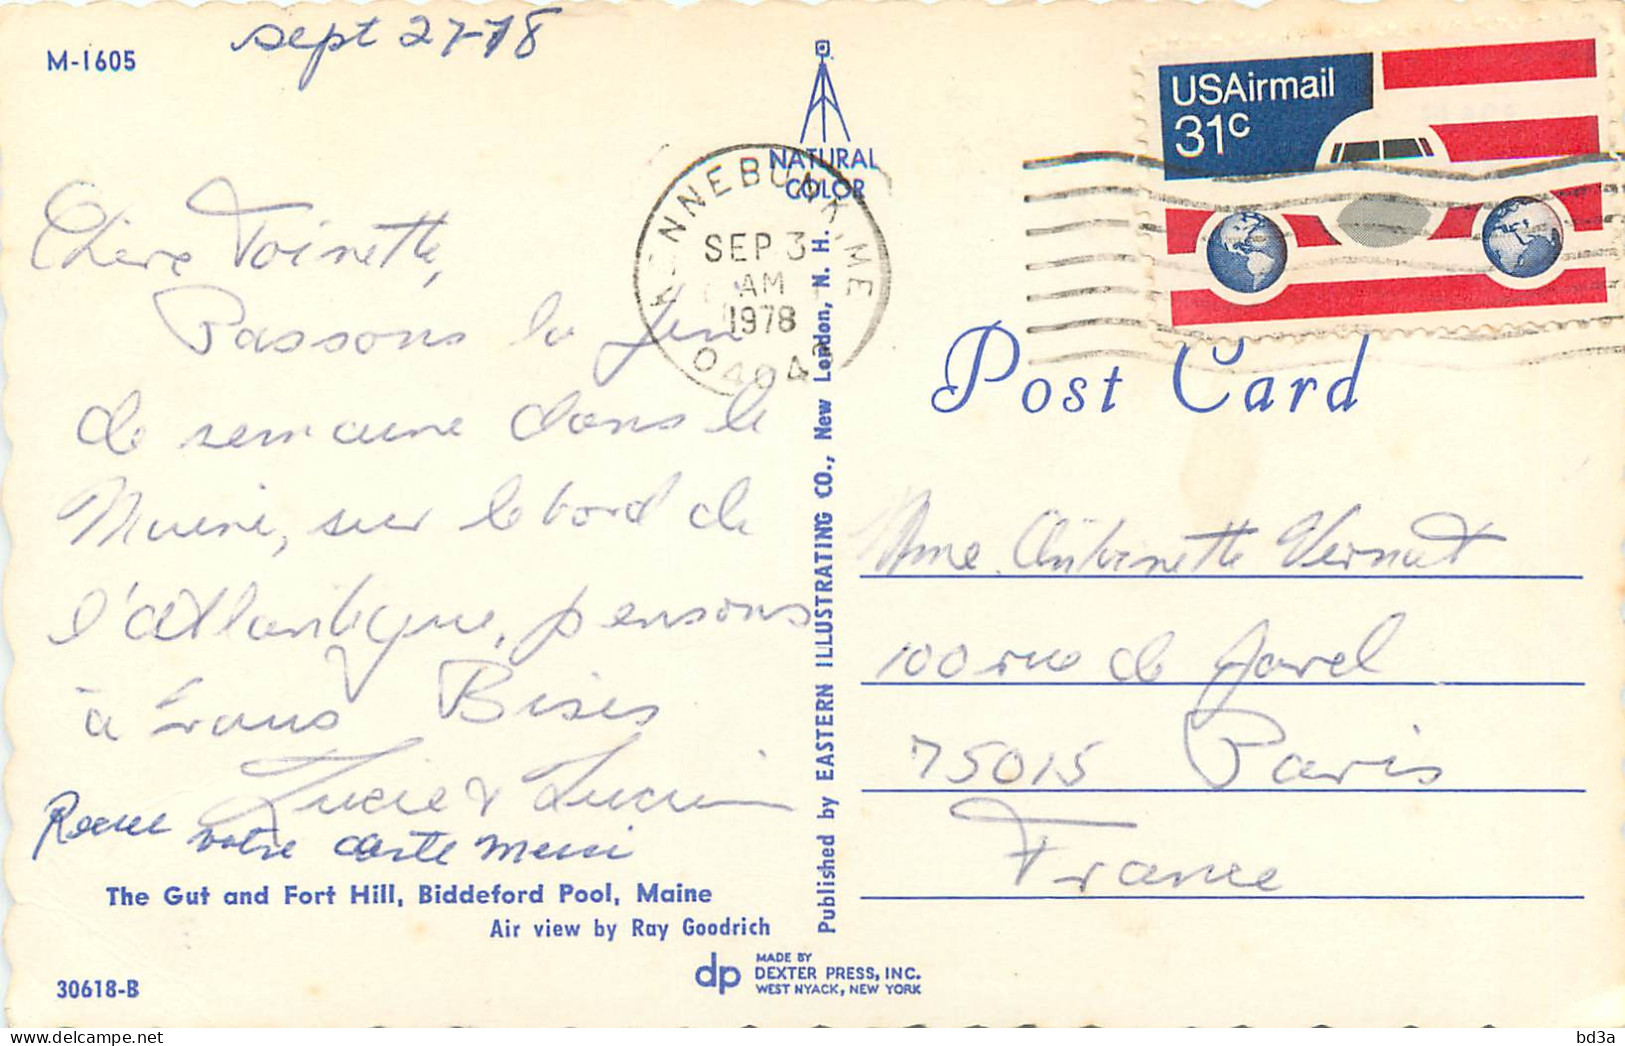 M-1605
sept 27-78
Chère Toinette,
Passons la fin
de semaine dans le
Maine, sur le bord de
l'atlantique, pensons
à vous Bises
Lucie & Lucien
Recue votre carte merci
The Gut and Fort Hill, Biddeford Pool, Maine
Air view by Ray Goodrich
30618-B
NATURAL
COLOR
KENNEBUNK, ME
SEP 3
AM
1978
04043
Published by EASTERN ILLUSTRATING CO., New London, N. H.
dp
MADE BY
DEXTER PRESS, INC.
WEST NYACK, NEW YORK
USAirmail
31c
Post Card
Mme. Antoinette
100 rue de Javel
75015 Paris
France
bd3a